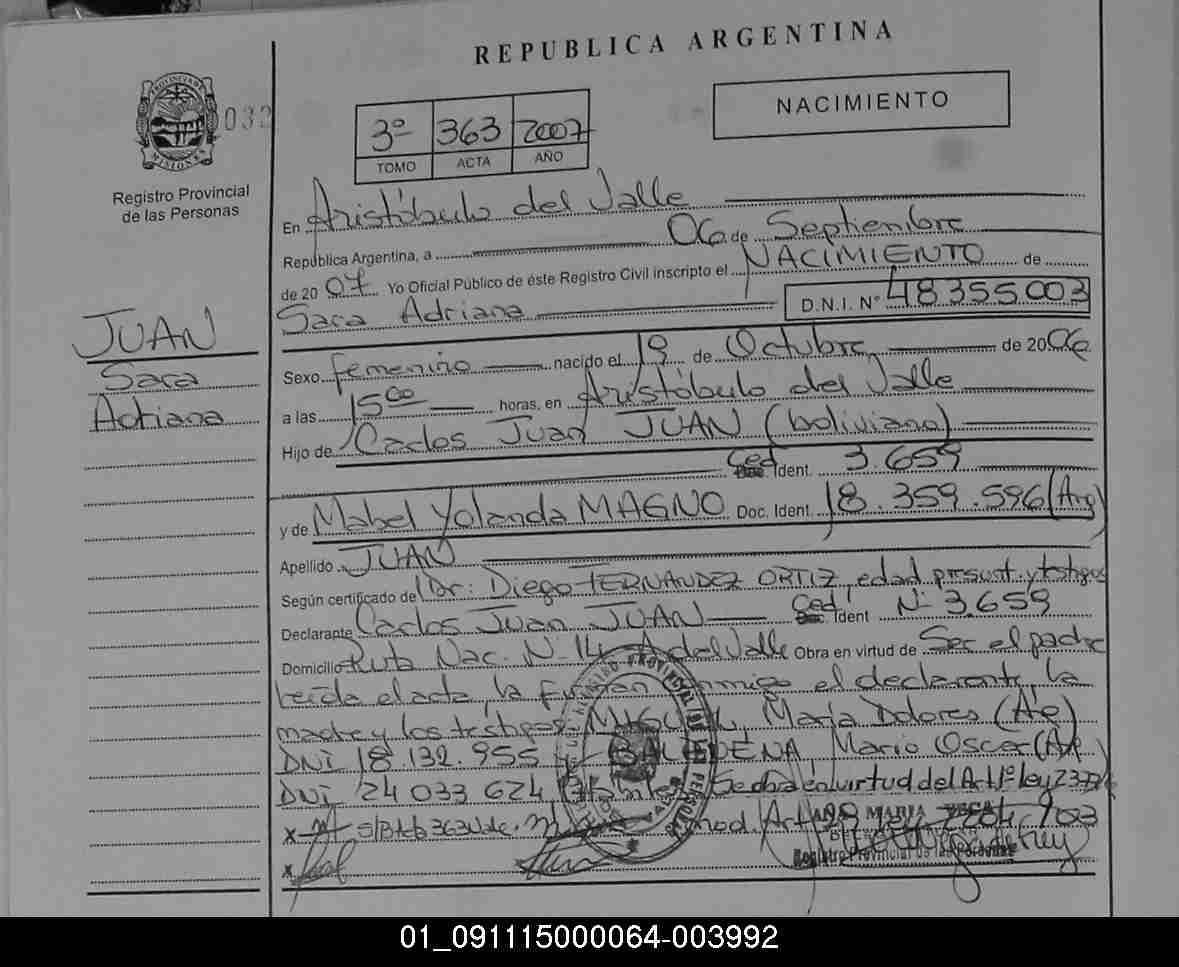 REPUBLICA ARGENTINA
PROVINCIA DE MISIONES
032
Registro Provincial
de las Personas
3º 363 2007
TOMO ACTA AÑO
NACIMIENTO
JUAN
Sara
Adriana
En Aristóbulo del Valle
República Argentina, a 06 de Septiembre
de 2007 Yo Oficial Público de éste Registro Civil inscripto el NACIMIENTO de
Sara Adriana D.N.I. Nº 48355003
Sexo femenino nacido el 19 de Octubre de 2006
a las 15 00 horas, en Aristóbulo del Valle
Hijo de Carlos Juan JUAN (boliviano)
Ced Ident. 3.659
y de Mabel Yolanda MAGNO Doc. Ident. 18.359.596 (Arg)
Apellido JUAN
Según certificado de Dr: Diego FERNANDEZ ORTIZ, edad presunt. y testigos
Declarante Carlos Juan JUAN Ced Ident Nº 3.659
Domicilio Ruta Nac. Nº 14 A del Valle Obra en virtud de Ser el padre
Leída el acta, la firman conmigo el declarante, la
madre y los testigos María Dolores (Arg)
DNI 18.132.955 Mario Oscar (Arg.)
DNI 24 033 624 Se obra en virtud del Art 1º Ley
mod. Art
Registro Provincial de las Personas
01_091115000064-003992